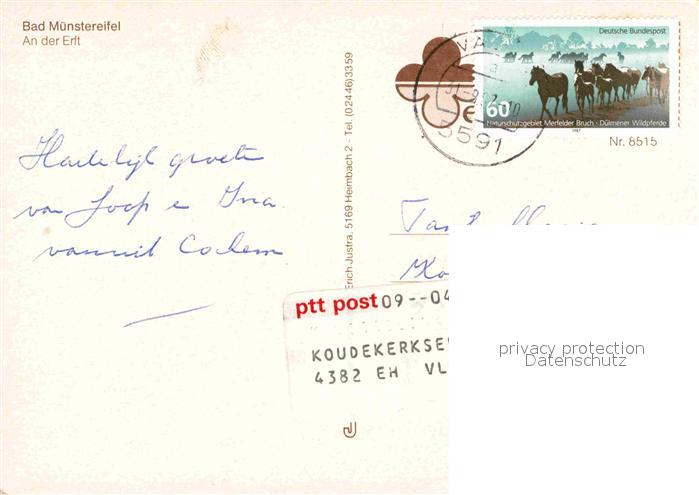 Bad Münstereifel
An der Erft
Hartelijk groeten
van Joop e Ina
vanuit Cochem
Erich Justra, 5169 Heimbach 2 - Tel. (02446)3359
Deutsche Bundespost
60
Naturschutzgebiet Merfelder Bruch · Dülmener Wildpferde
1987
591
Nr. 8515
Tante
ptt post 09--04
KOUDEKERKSE
4382 EH VL
privacy protection
Datenschutz